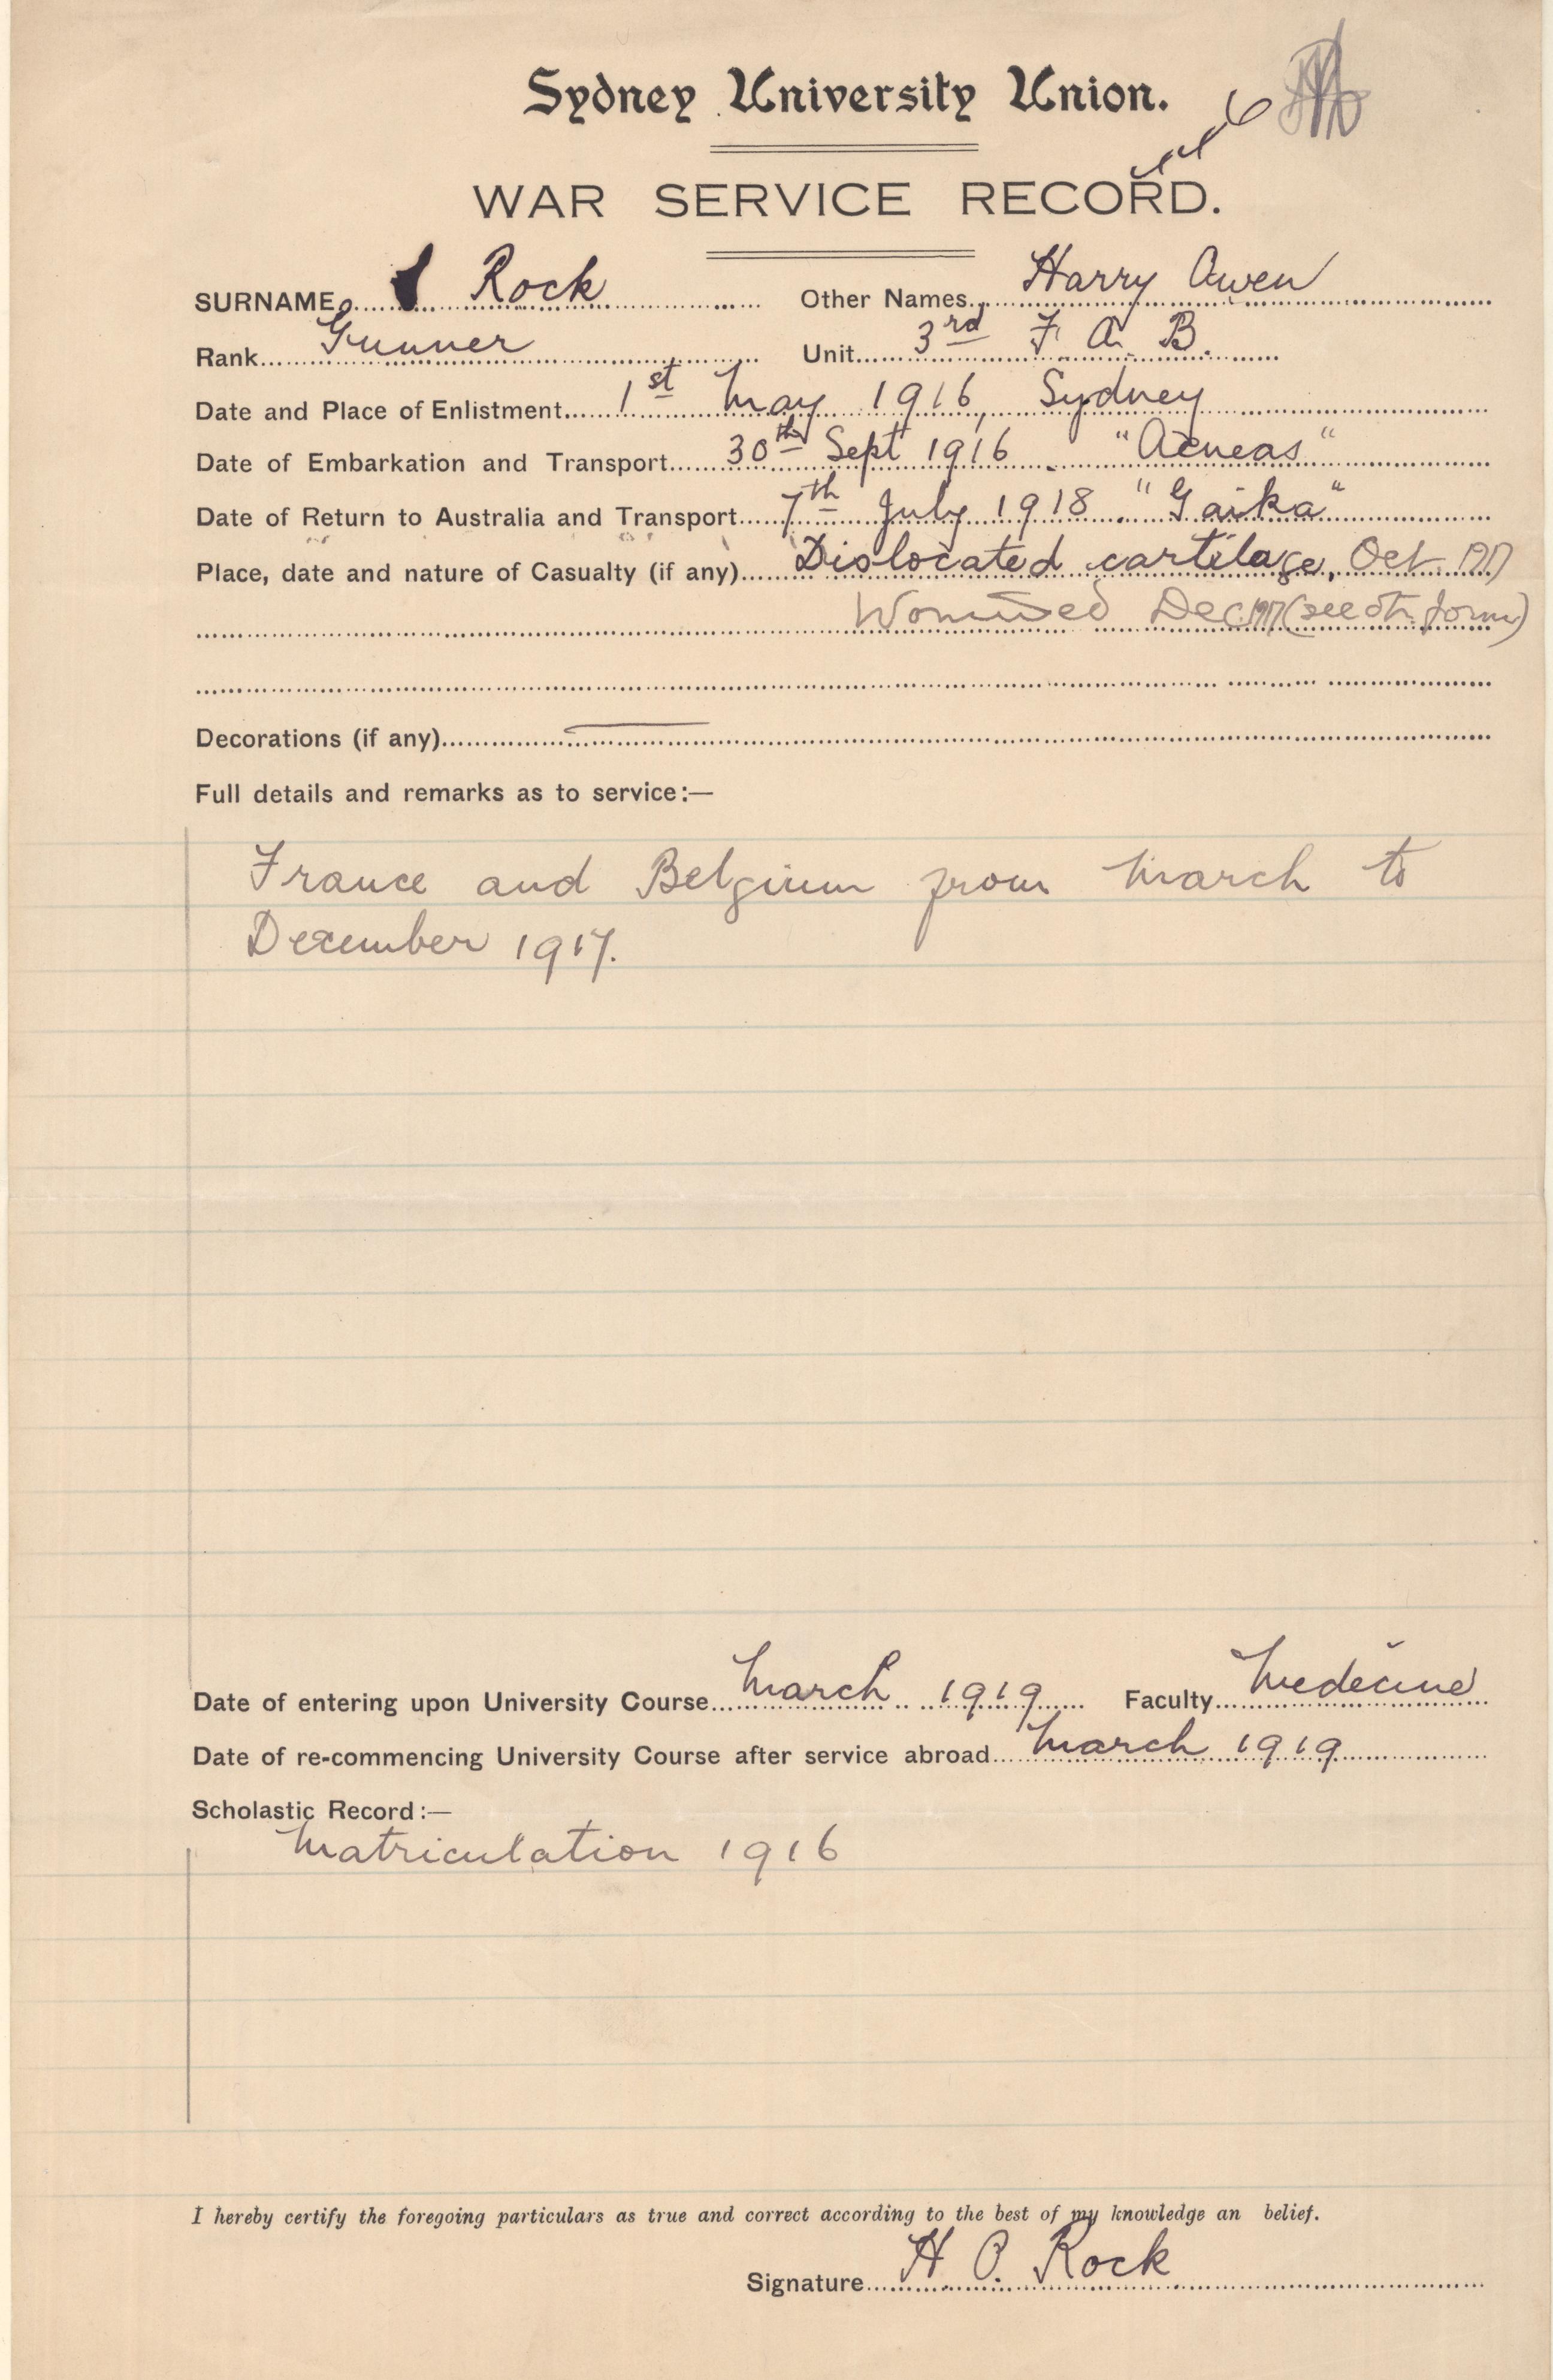 Sydney University Union.
WAR SERVICE RECORD.
SURNAME Rock Other Names Harry Owen
Rank Gunner Unit 3rd F. A. B.
Date and Place of Enlistment 1st May 1916, Sydney
Date of Embarkation and Transport 30th Sept 1916 "Aeneas"
Date of Return to Australia and Transport 7th July 1918 "Gaika"
Place, date and nature of Casualty (if any) Dislocated cartilage, Oct. 1917
Wounded Dec. 1917 (see oth. form)
Decorations (if any)
Full details and remarks as to service:—
France and Belgium from March to
December 1917.
Date of entering upon University Course March 1919 Faculty Medecine
Date of re-commencing University Course after service abroad March 1919
Scholastic Record:—
Matriculation 1916
I hereby certify the foregoing particulars as true and correct according to the best of my knowledge an belief.
Signature H O. Rock